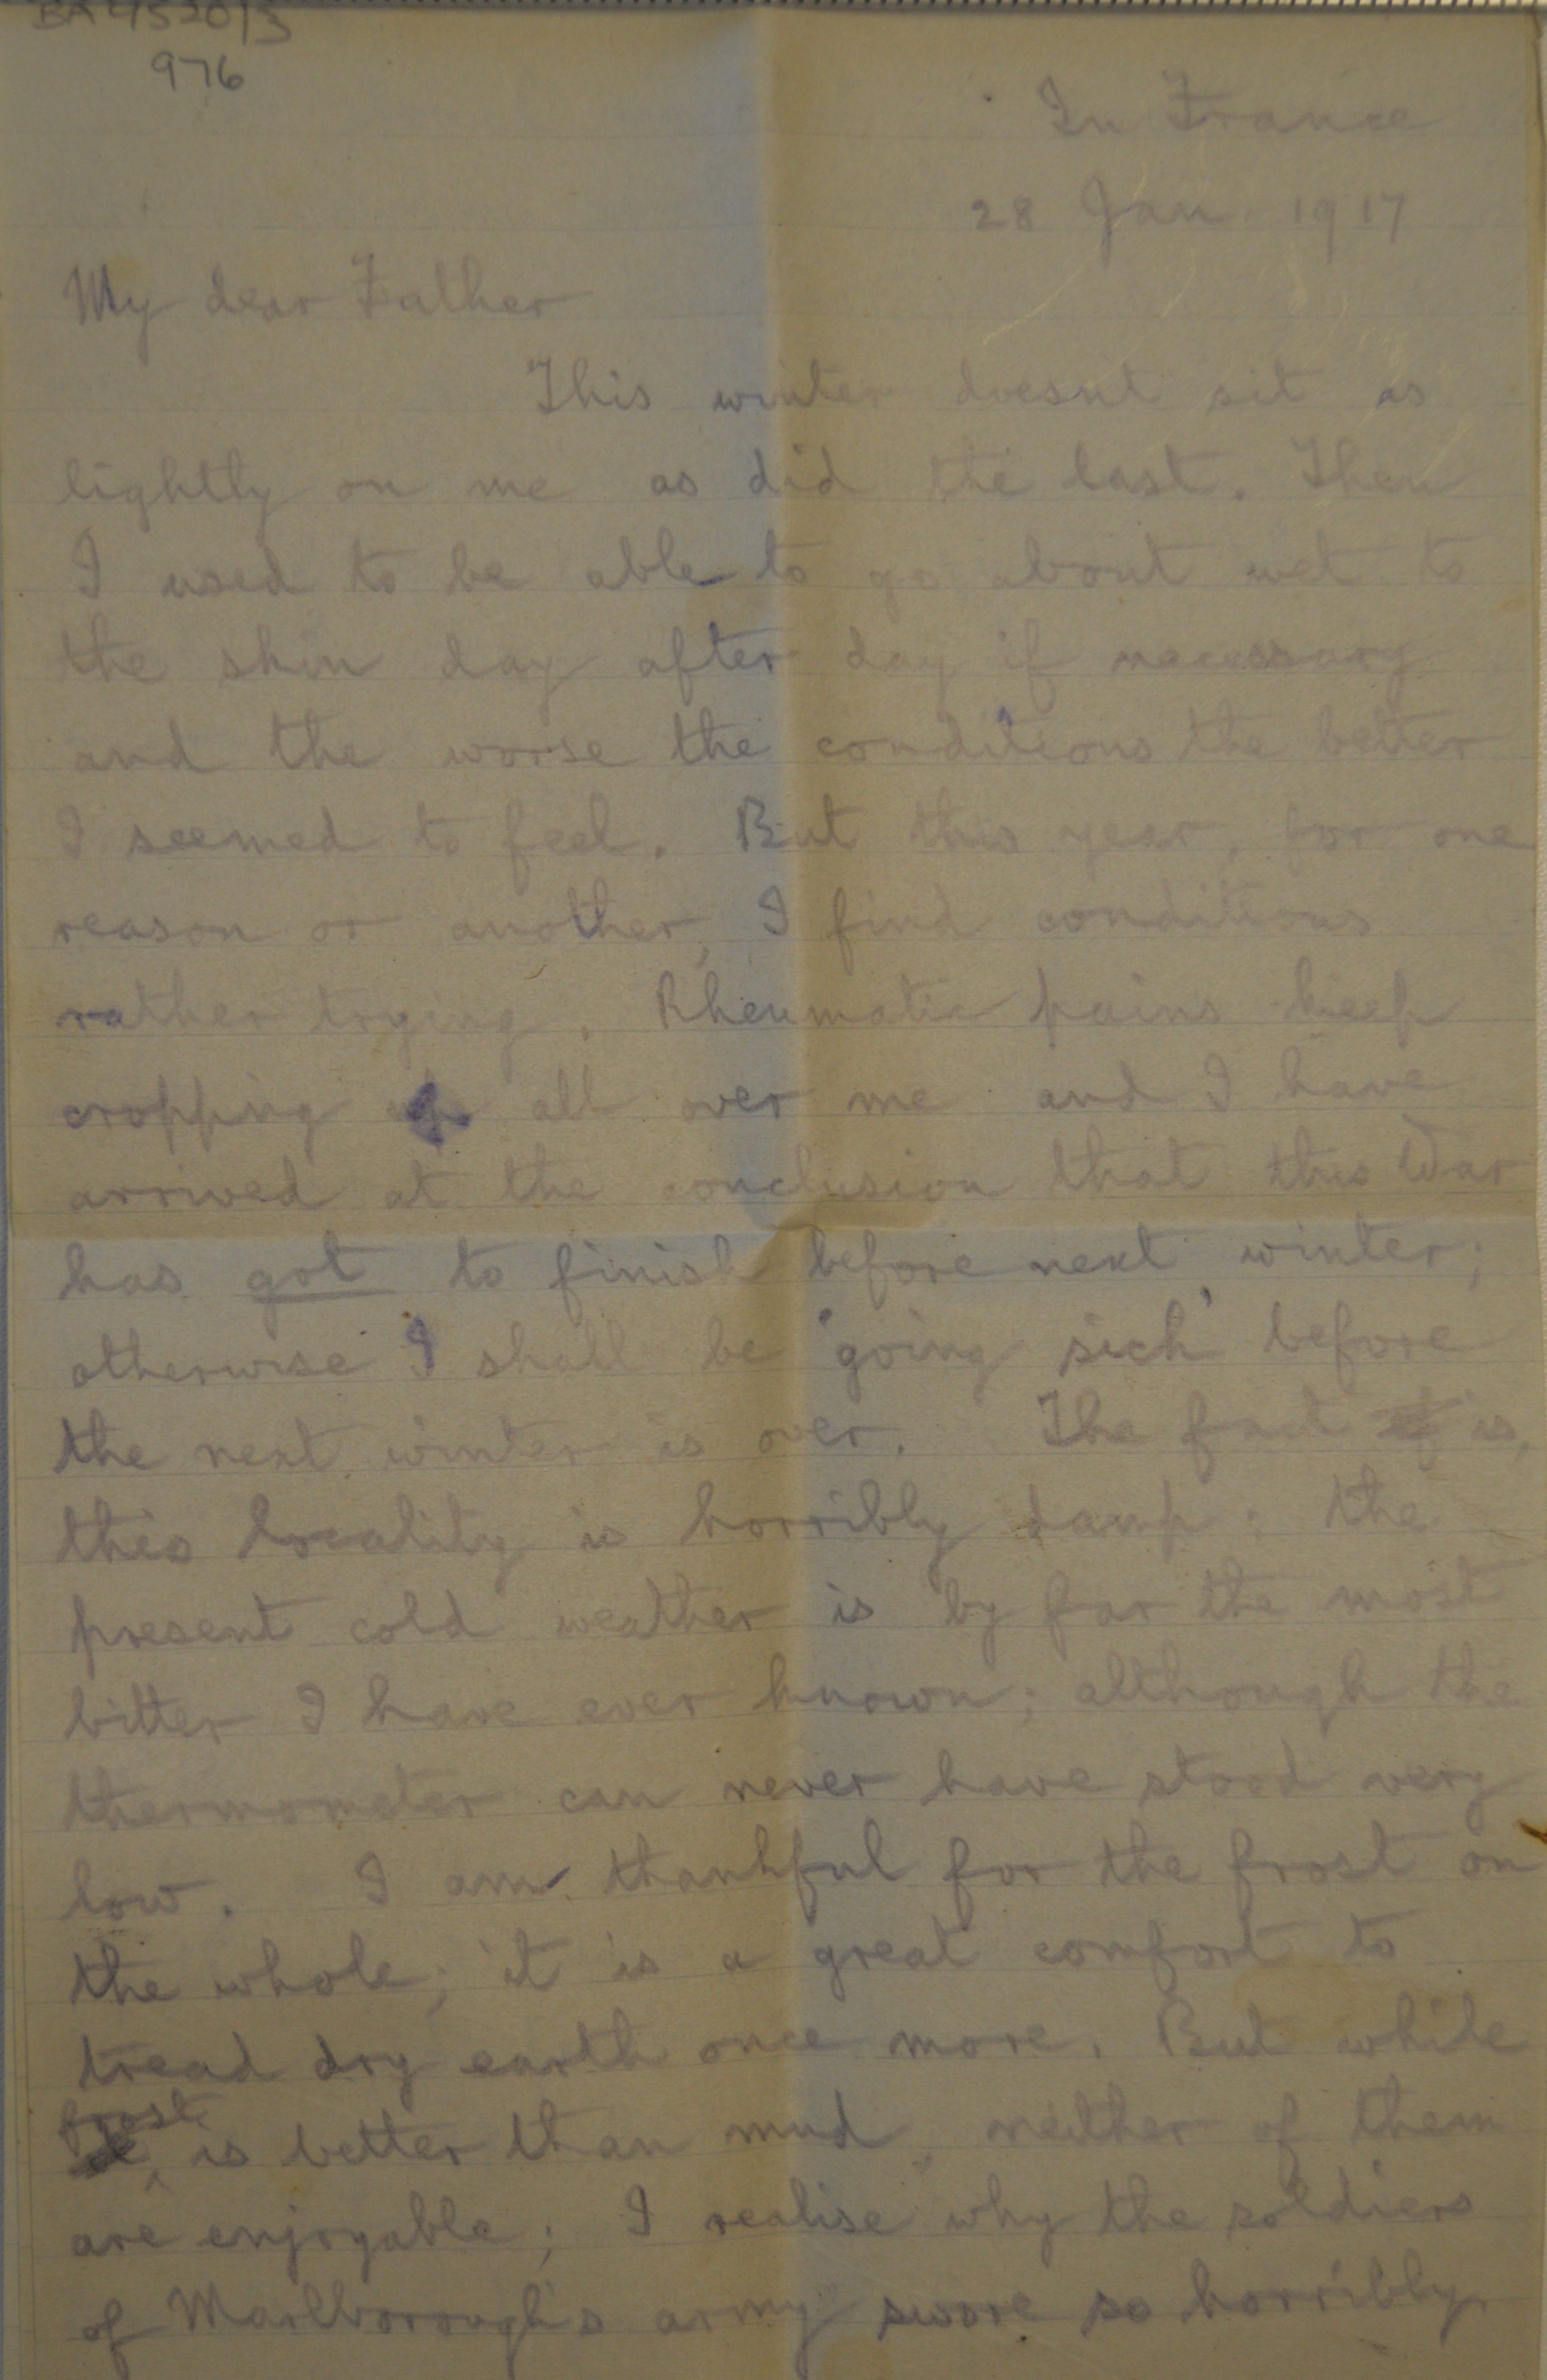 BA 4520/3
976
In France
28 Jan 1917
My dear Father
This winter doesnt sit as
lightly on me as did the last. Then
I used to be able to go about wet to
the skin day after day if necessary
and the worse the conditions the better
I seemed to feel. But this year, for one
reason or another, I find conditions
rather trying. Rheumatic pains keep
cropping up all over me and I have
arrived at the conclusion that this War
has got to finish before next winter;
otherwise I shall be 'going sick' before
the next winter is over. The fact is,
this locality is horribly damp: the
present cold weather is by far the most
bitter I have ever known; although the
thermometer can never have stood very
low. I am thankful for the frost on
the whole; it is a great comfort to
tread dry earth once more. But while
frost is better than mud, neither of them
are enjoyable; I realise why the soldiers
of Marlborough's army swore so horribly